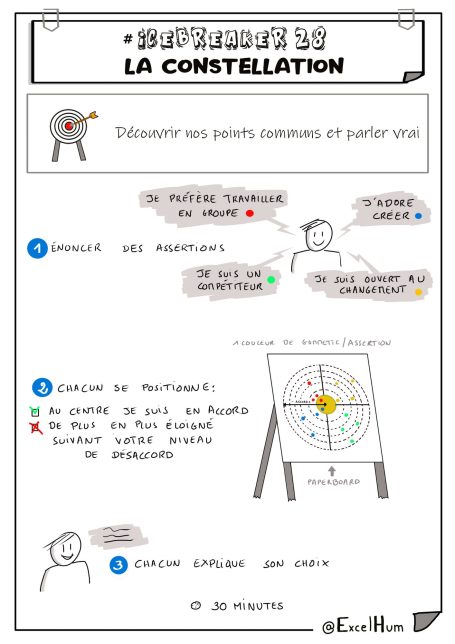 # ICEBREAKER 28
LA CONSTELLATION
Découvrir nos points communs et parler vrai
JE PRÉFÈRE TRAVAILLER
EN GROUPE
J'ADORE
CRÉER
1 ÉNONCER DES ASSERTIONS
JE SUIS UN
COMPÉTITEUR
JE SUIS OUVERT AU
CHANGEMENT
1 COULEUR DE GOMMETTE/ASSERTION
2 CHACUN SE POSITIONNE:
AU CENTRE JE SUIS EN ACCORD
DE PLUS EN PLUS ÉLOIGNÉ
SUIVANT VOTRE NIVEAU
DE DÉSACCORD
PAPERBOARD
3 CHACUN EXPLIQUE SON CHOIX
30 MINUTES
@ExcelHum